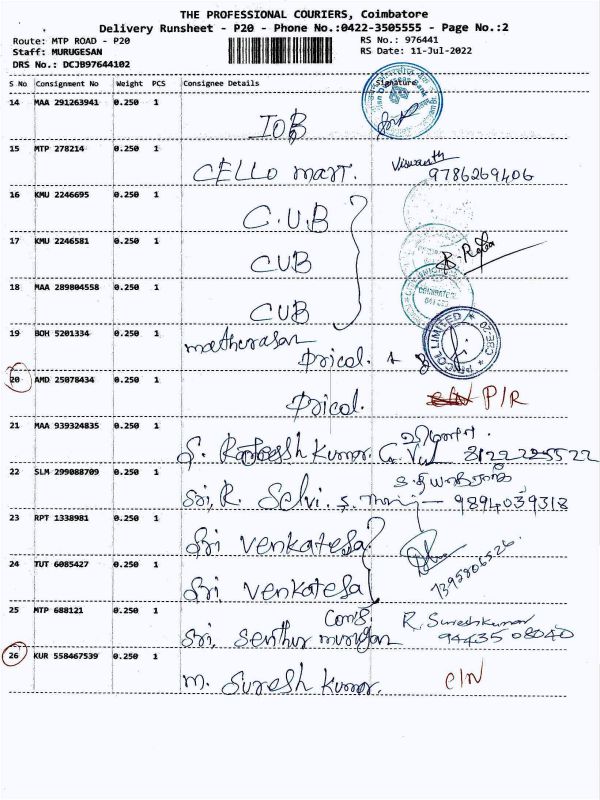 THE PROFESSIONAL COURIERS, Coimbatore
Delivery Runsheet - P20 - Phone No.:0422-3505555 - Page No.:2
Route: MTP ROAD - P20 RS No.: 976441
Staff: MURUGESAN RS Date: 11-Jul-2022
DRS No.: DCJB97644102
S No Consignment No Weight PCS Consignee Details Signature
14 MAA 291263941 0.250 1 IOB
15 MTP 278214 0.250 1 CELLO mart. Viswanth 9786269406
16 KMU 2246695 0.250 1 C.U.B
17 KMU 2246581 0.250 1 CUB
18 MAA 289804558 0.250 1 CUB
19 BOH 5201334 0.250 1 Pricol. PRICOL LIMITED CBE-20
20 AMD 25078434 0.250 1 Pricol. P/R
21 MAA 939324835 0.250 1 S. Rajesh Kumar. 8122225522
22 SLM 299088709 0.250 1 Sri. R. Selvi. 9894039318
23 RPT 1338981 0.250 1 Sri venkatesa
24 TUT 6085427 0.250 1 Sri venkatesa 7395806526.
25 MTP 688121 0.250 1 Sri, Senthur murugan R. Sureshkumar 94435 08040
26 KUR 558467539 0.250 1 m. Suresh Kumar. C/N